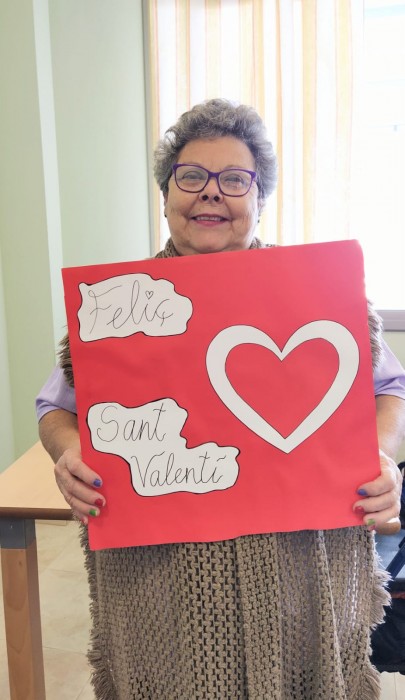 Feliç
Sant
Valentí